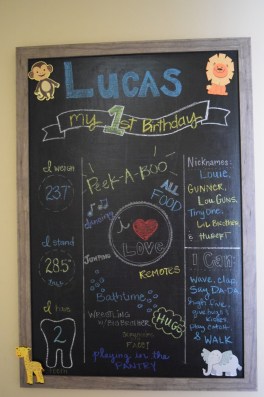 LUCAS
my 1st Birthday
I weigh
237
I stand
28.5
TALL
I have
2
TEETH
PEEK-A-BOO
ALL
FOOD
dancing
i
LOVE
Jumping
REMOTES
Bathtime
WRESTLING
W/ BIG BROTHER
HUGS
FACE!
playing in the
PANTRY
Nicknames:
Louie,
GUNNER,
LOU GUNS,
Tiny one,
LIL BROTHER
I Can:
wave, clap,
Say DA-DA
high five
give hugs &
kisses
play catch
& WALK